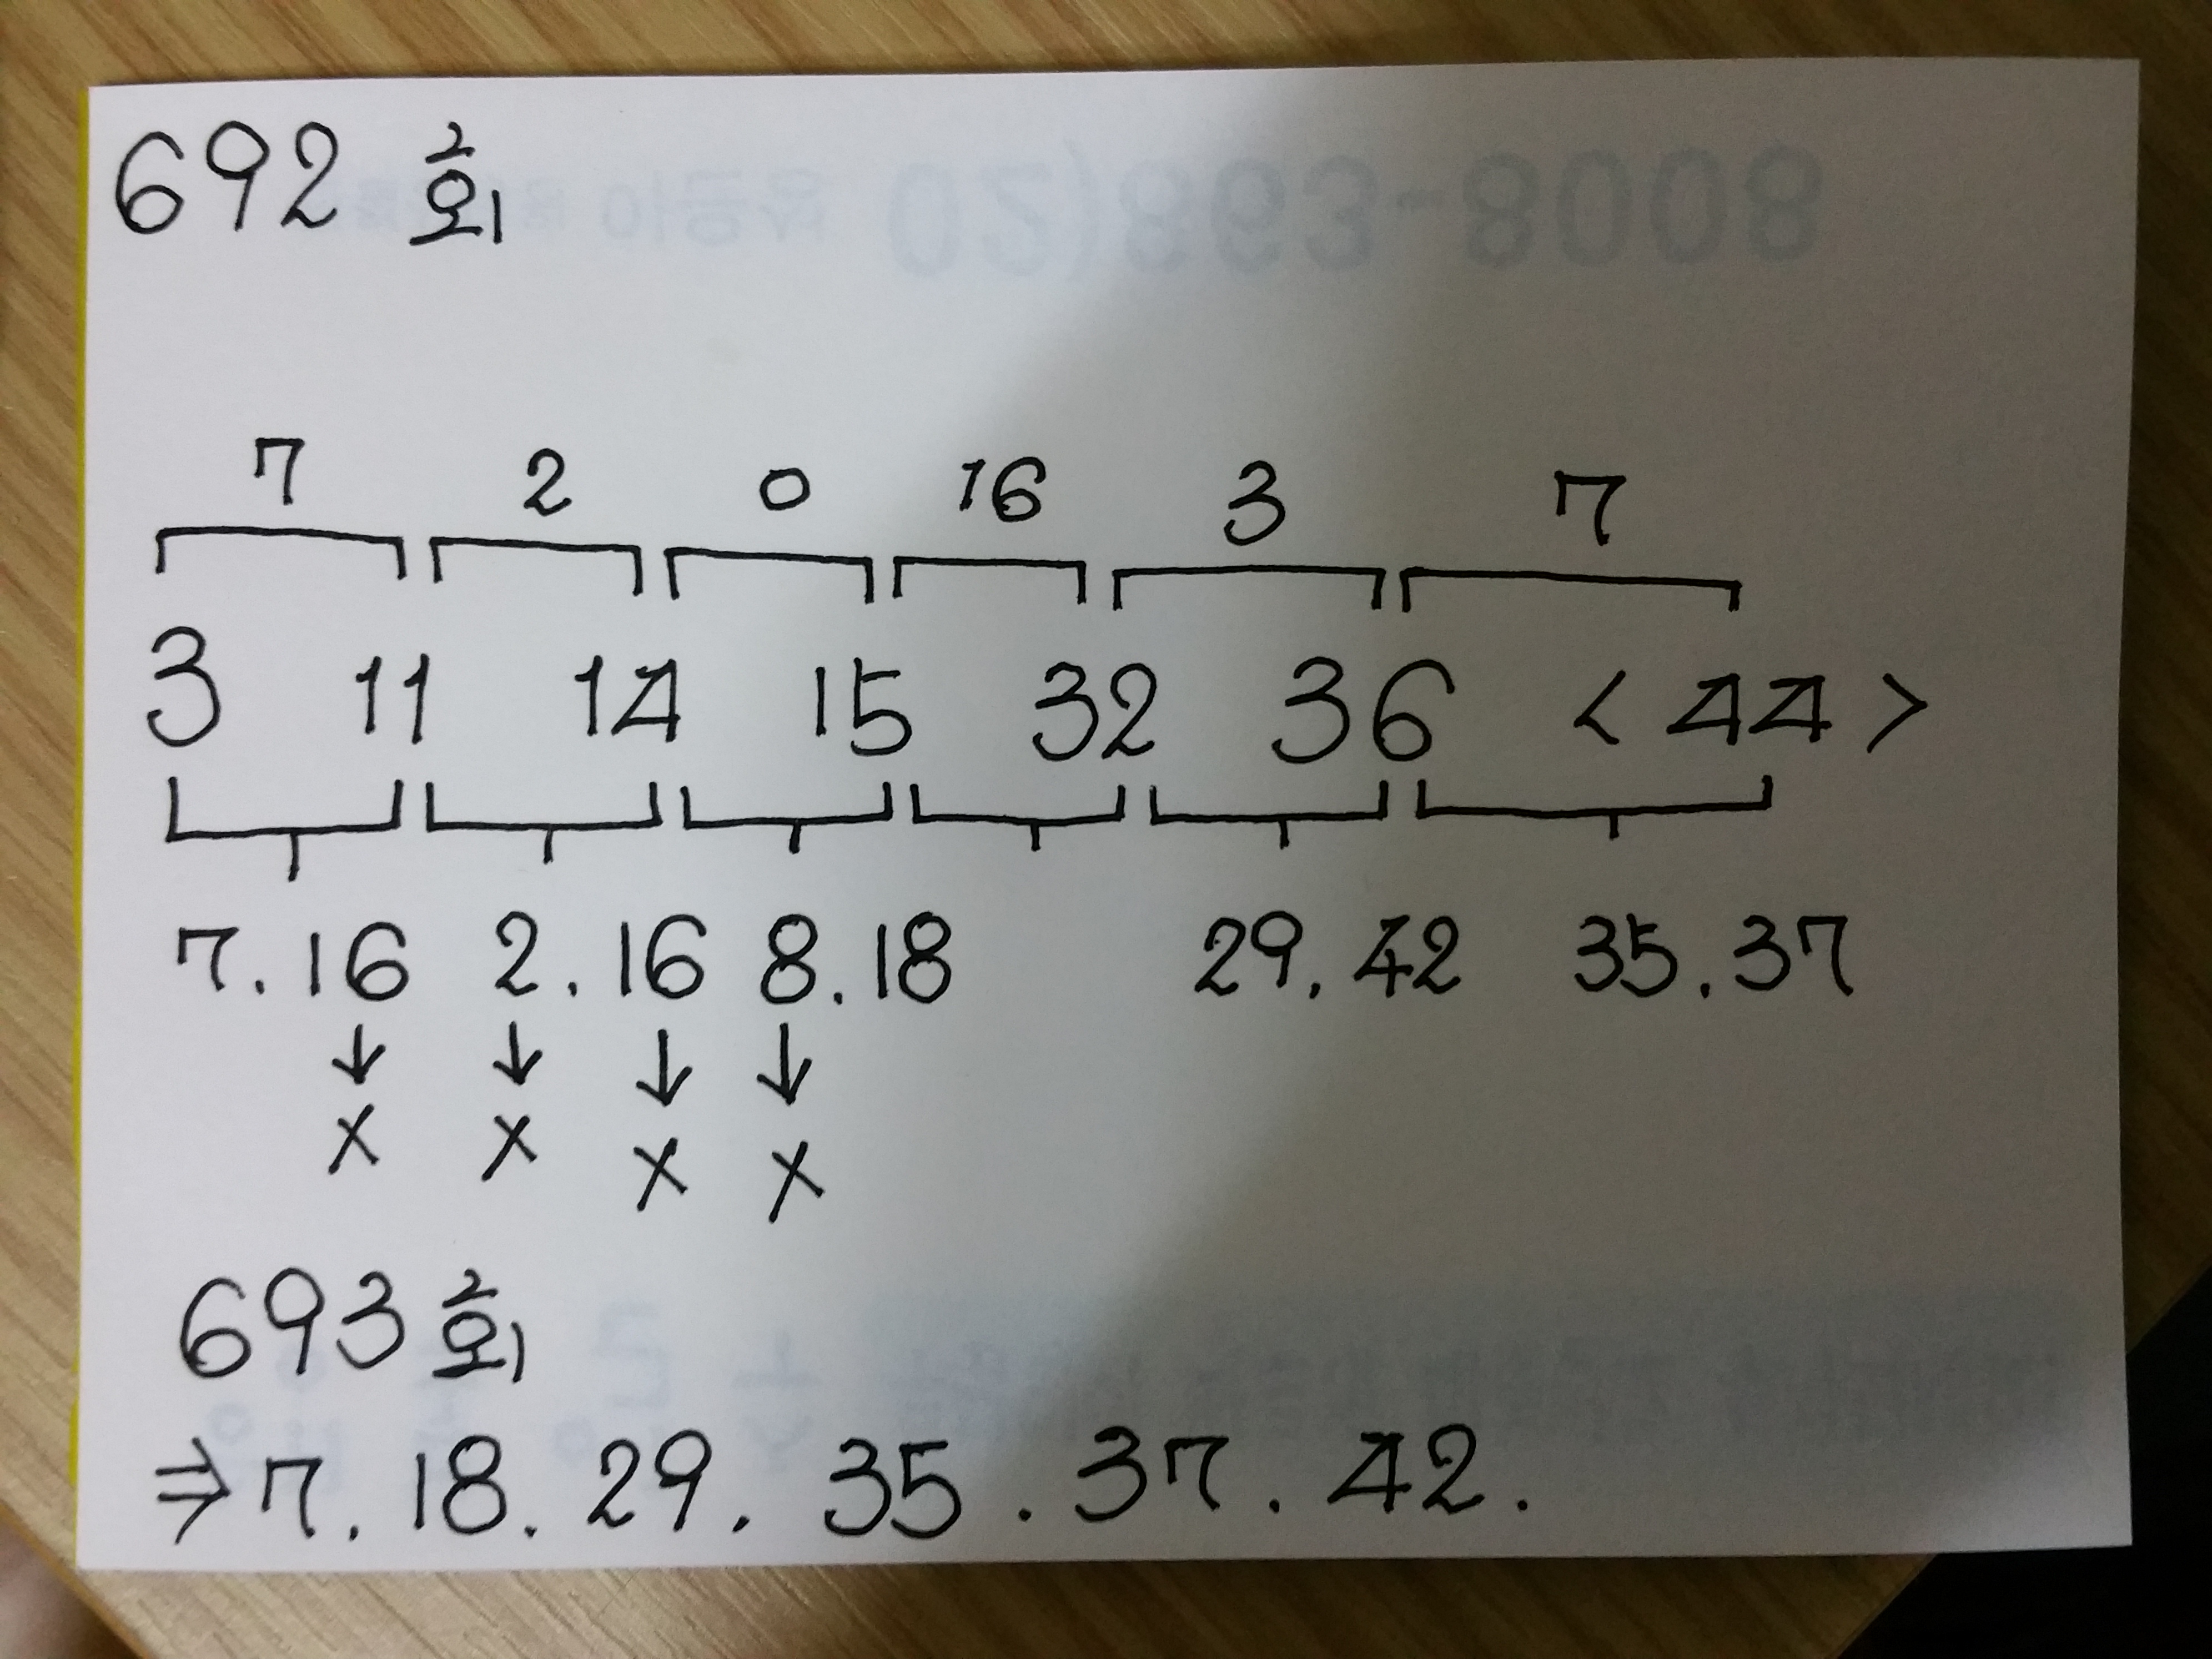 692 회
02)893-8008
7 2 0 16 3 7
3 11 14 15 32 36 < 44 >
7. 16 2. 16 8. 18 29. 42 35. 37
↓ ↓ ↓ ↓
X X X X
693 회
⇒ 7. 18. 29. 35. 37. 42.